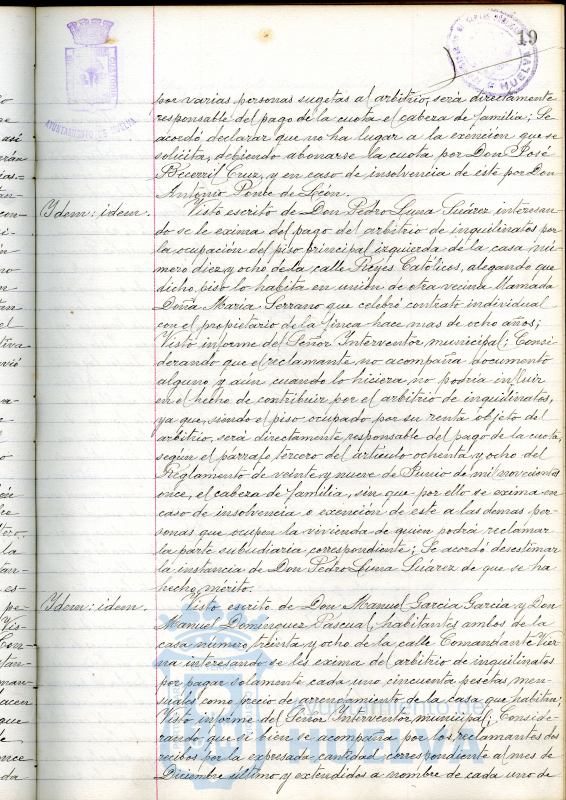 19
AYUNTAMIENTO DE HUELVA
HUELVA
por varias personas sugetas al arbitrio, será directamente
responsable del pago de la cuota el cabeza de familia; Se
acordó declarar que no ha lugar a la exención que se
solicita, debiendo abonarse la cuota por Don José
Becerril Cruz, y en caso de insolvencia de este por Don
Antonio Ponte de León.
Idem: idem.
Visto escrito de Don Pedro Luna Suárez interesan-
do se le exima del pago del arbitrio de inquilinatos por
la ocupación del piso principal izquierda de la casa nú-
mero diez y ocho de la calle Reyes Católicos, alegando que
dicho piso lo habita en unión de otra vecina llamada
Doña Maria Serrano que celebró contrato individual
con el propietario de la finca hace mas de ocho años;
Visto informe del Señor Interventor municipal; Consi-
derando que el reclamante no acompaña documento
alguno y aun cuando lo hiciera, no podria influir
en el hecho de contribuir por el arbitrio de inquilinatos,
ya que, siendo el piso ocupado por su renta objeto del
arbitrio, será directamente responsable del pago de la cuota,
según el párrafo tercero del articulo ochenta y ocho del
Reglamento de veinte y nueve de Junio de mil novecientos
once, el cabeza de familia, sin que por ello se exima en
caso de insolvencia o exención de este a las demas per-
sonas que ocupen la vivienda de quien podrá reclamar
la parte subsidiaria correspondiente; Se acordó desestimar
la instancia de Don Pedro Luna Suárez de que se ha
hecho mérito.
Idem: idem.
Visto escrito de Don Manuel Garcia Garcia y Don
Manuel Dominguez Pascual, habitantes ambos de la
casa número treinta y ocho de la calle Comandante Vier-
na interesando se les exima del arbitrio de inquilinatos
por pagar solamente cada uno cincuenta pesetas men-
suales como precio de arrendamiento de la casa que habitan;
Visto informe del Señor Interventor municipal; Conside-
rando que si bien se acompaña por los reclamantes dos
recibos por la expresada cantidad correspondiente al mes de
Diciembre último y extendidos a nombre de cada uno de